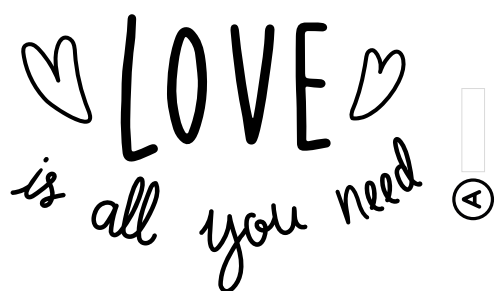 LOVE
is all you need
A